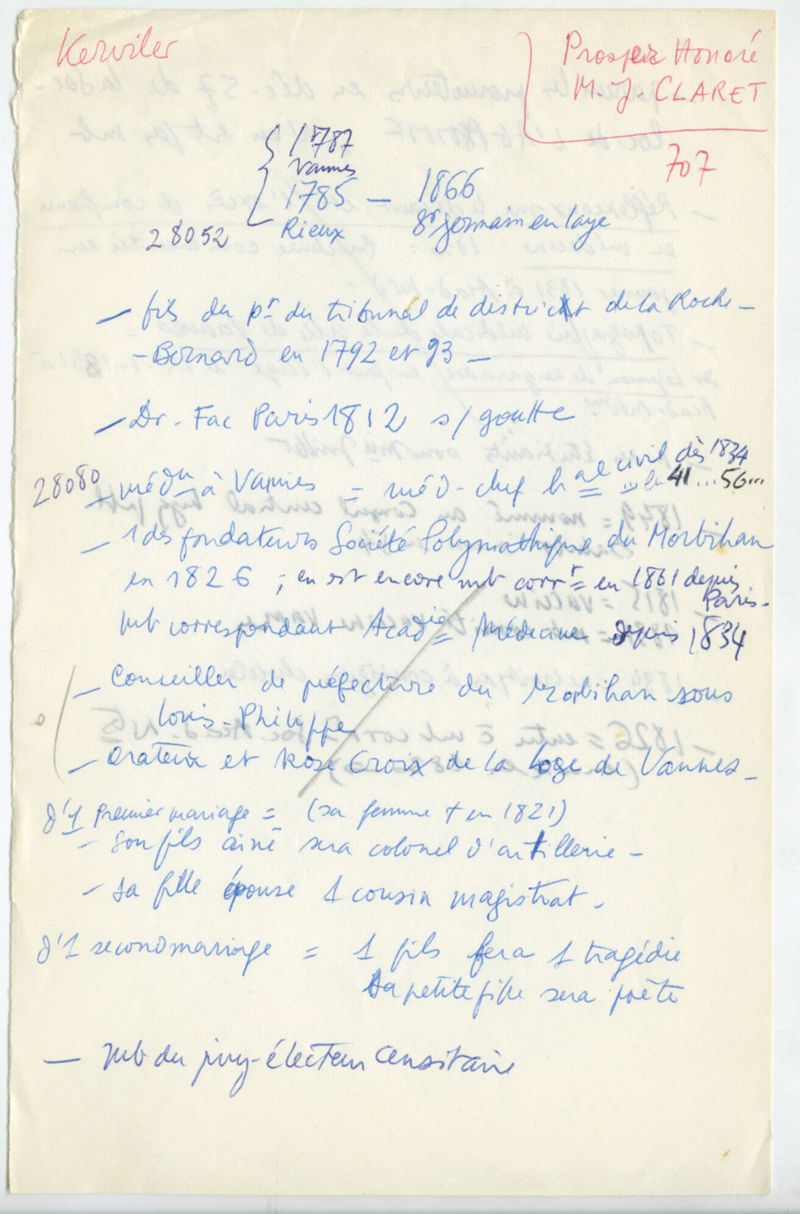 Kerviler
Prosper Honoré
M. J. CLARET
707
1787
Vannes
1785 — 1866
Rieux St Germain en Laye
28052
— fils du pt du tribunal de district de la Roche-
-Bernard en 1792 et 93 —
— Dr. Fac Paris 1812 s/goutte
28080
— médn à Vannes = méd-chef hal civil dès 1834
... en 41 ... 56 ...
— 1 des fondateurs Société Polymathique du Morbihan
en 1826 ; en est encore mb corrt = en 1861 depuis
Paris -
mb correspondant Acadie Médecine depuis 1834
— Conseiller de préfecture du Morbihan sous
Louis-Philippe
— orateur et Rose Croix de la loge de Vannes -
d'1 premier mariage = (sa femme + en 1821)
- Son fils ainé sera colonel d'artillerie -
- sa fille épouse 1 cousin magistrat -
d'1 second mariage = 1 fils fera 1 tragédie
Sa petite fille sera poète
— mb du jury-électeur censitaire